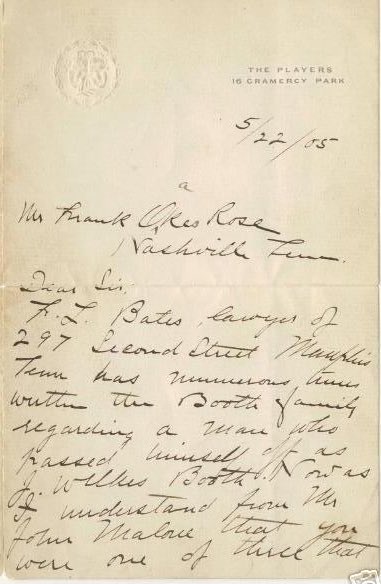 THE PLAYERS
16 GRAMERCY PARK
5/22/05
a
Mr Frank Okes Rose
Nashville Tenn.
Dear Sir,
F. L. Bates, lawyer of
297 Second Street Memphis
Tenn has numerous times
written the Booth family
regarding a man who
passed himself off as
J. Wilkes Booth. Now as
I understand from Mr
John Malone that you
were one of three that